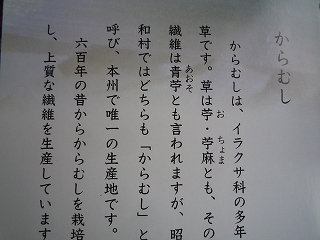 からむし
からむしは、イラクサ科の多年
草です。草は苧・苧麻とも、その
繊維は青苧とも言われますが、昭
和村ではどちらも「からむし」と
呼び、本州で唯一の生産地です。
六百年の昔からからむしを栽培
し、上質な繊維を生産しています